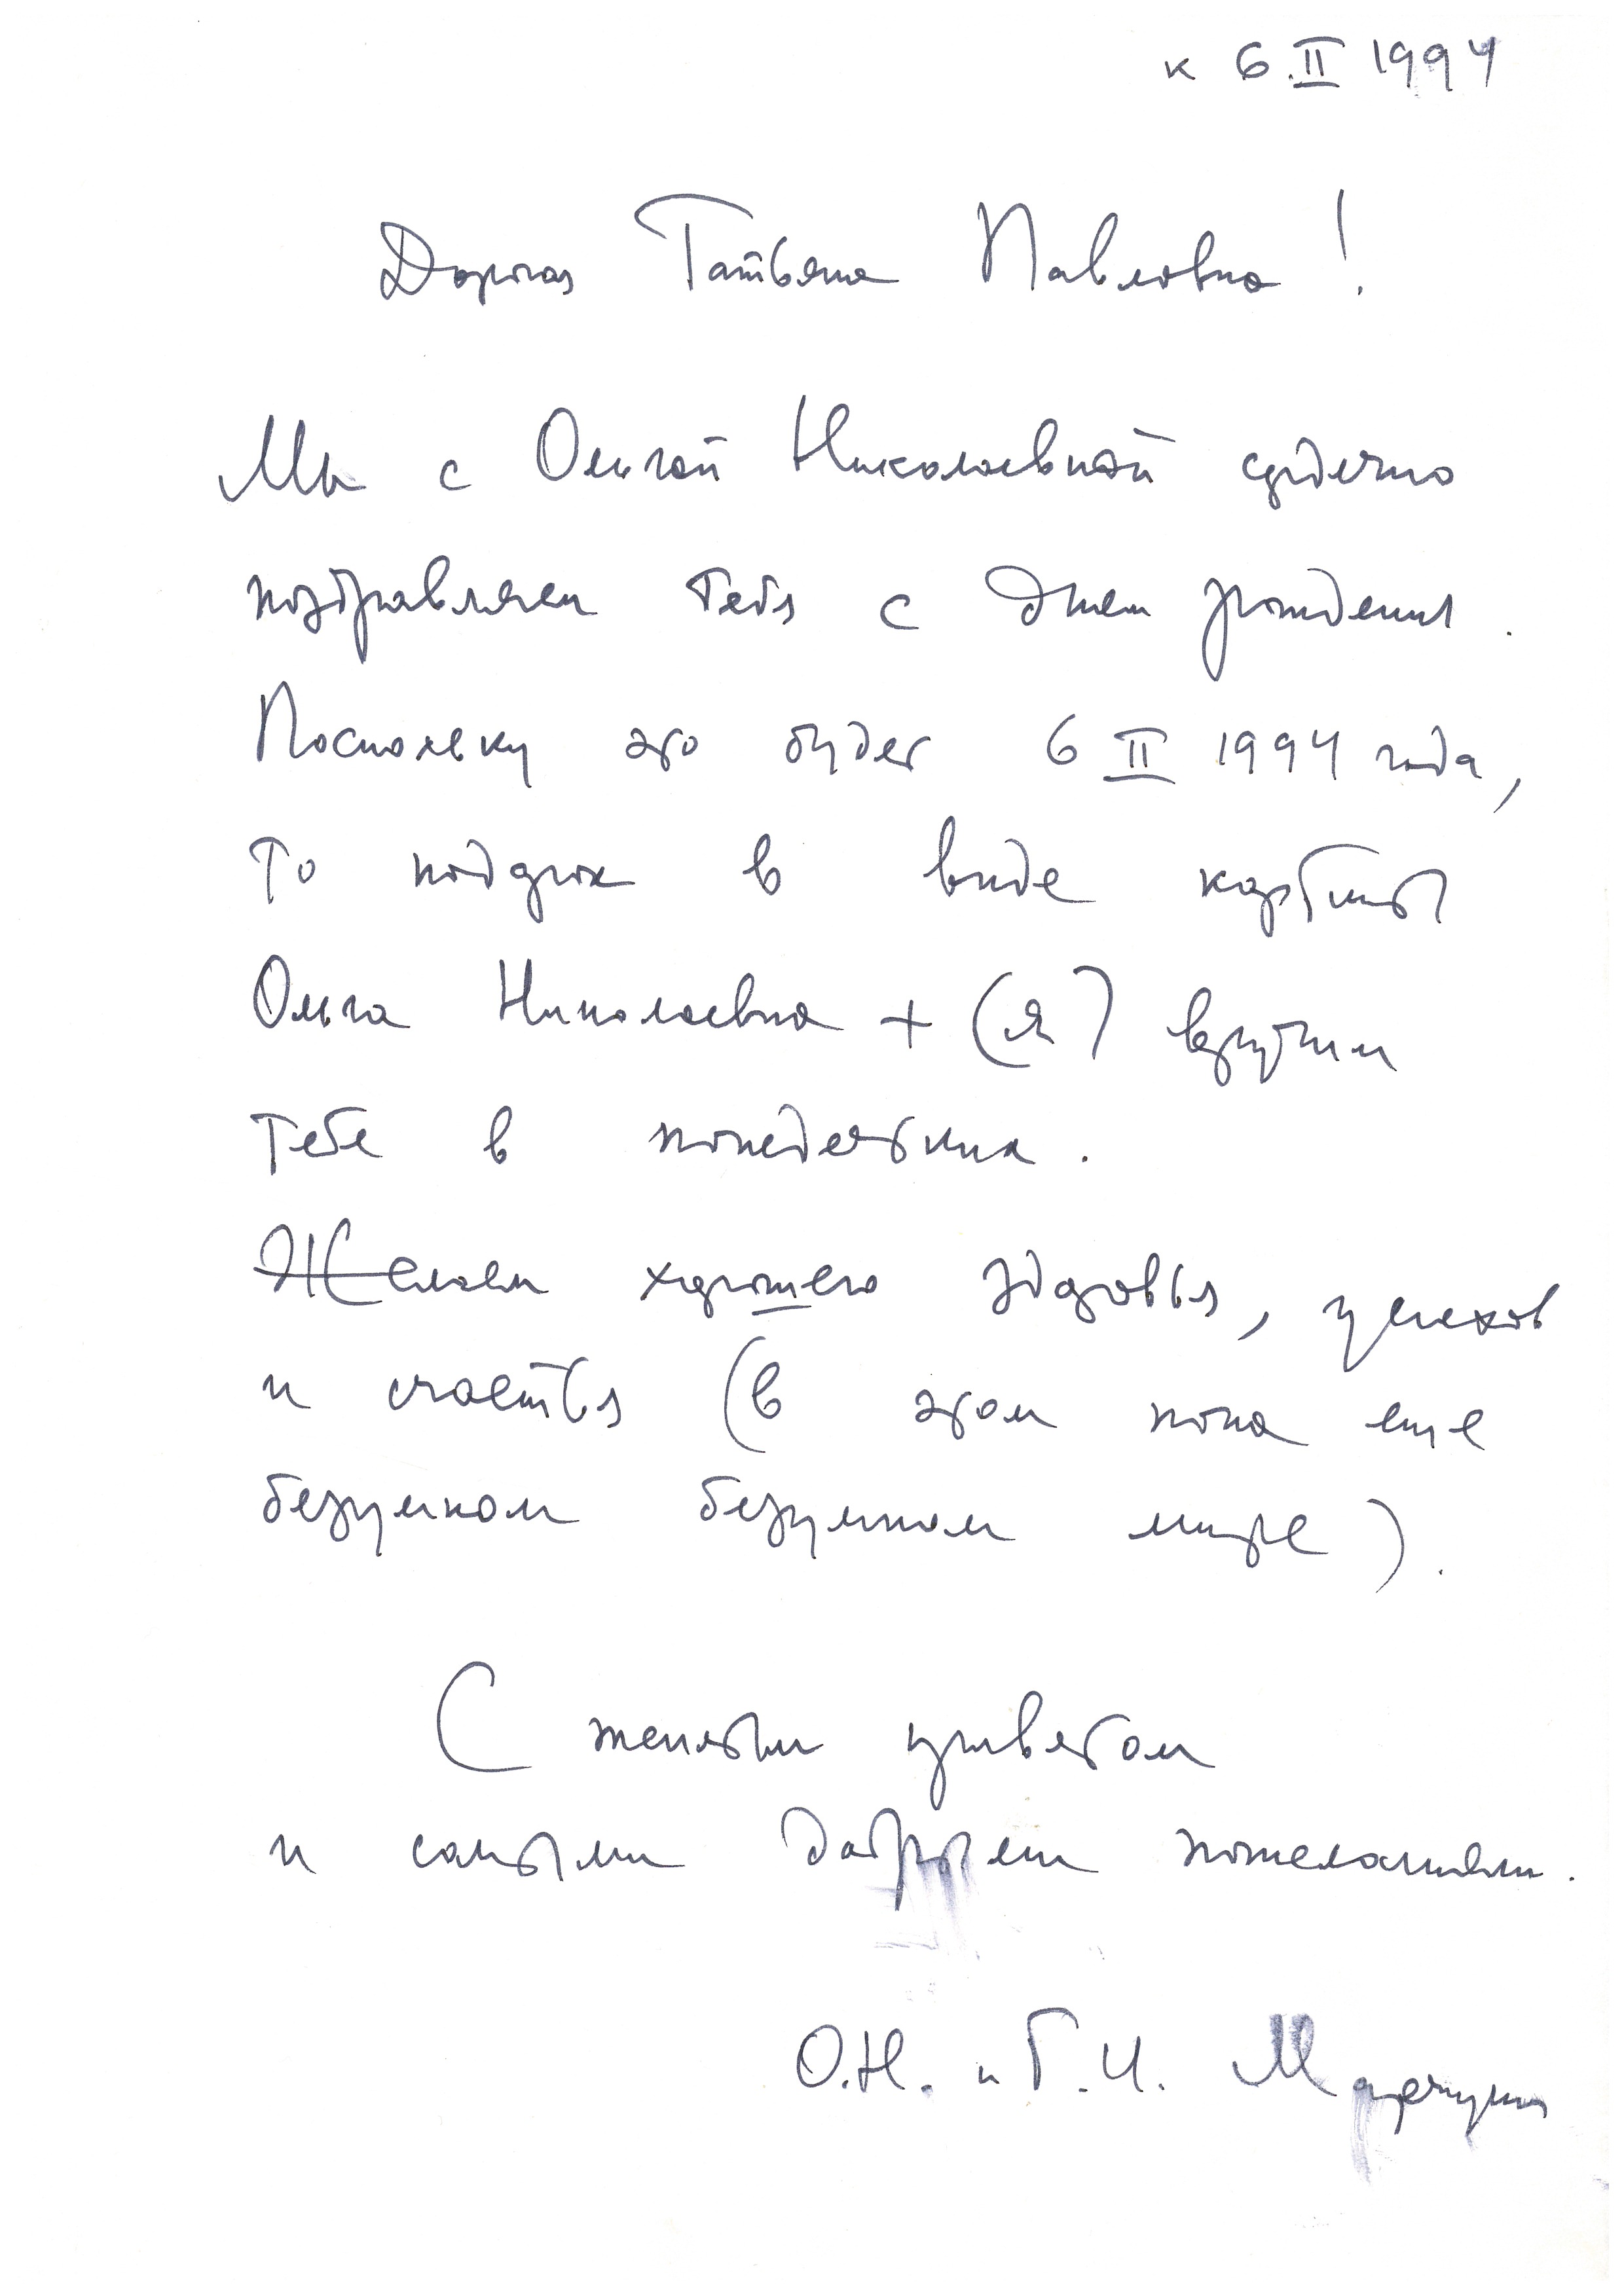 к 6.II 1994
Дорогая Татьяна Павловна!
Мы с Ольгой Николаевной сердечно
поздравляем тебя с днем рождения.
Поскольку это будет 6 II 1994 года,
то подарок в виде картины
Ольга Николаевна + (я) вручим
тебе в понедельник.
Желаем хорошего здоровья, успехов
и счастья (в этом пока еще
безумном безумном мире).
С теплым приветом
и самыми добрыми пожеланиями.
О.Н. и Г.И. Марчуки